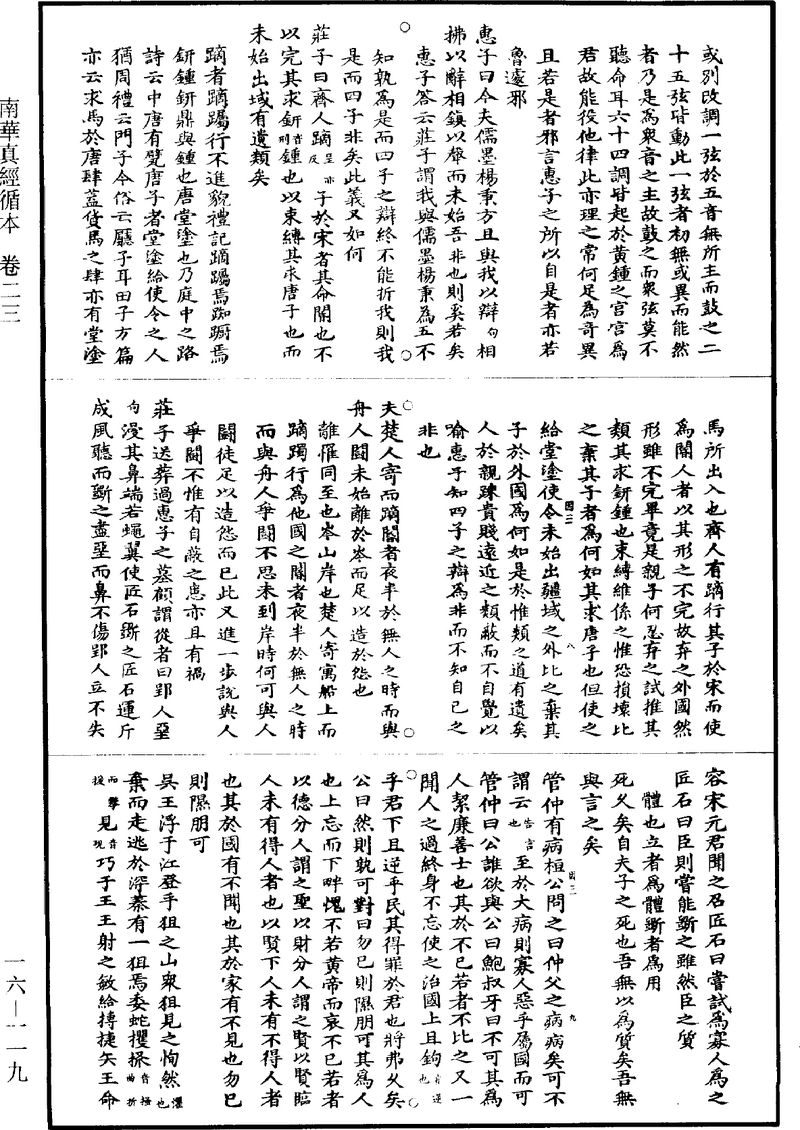 南華真經循本 卷二三
或別改調一弦於五音無所主而鼓之二
十五弦皆動此一弦者初無或異而能然
者乃是為衆音之主故鼓之而衆弦莫不
聽命耳六十四調皆起於黃鍾之宮宮為
君故能役他律此亦理之常何足為奇異
且若是者邪言惠子之所以自是者亦若
魯遽邪
惠子曰今夫儒墨楊秉方且與我以辯句相
拂以辭相鎮以聲而未始吾非也則奚若矣
惠子答云莊子謂我與儒墨楊秉為五不
知孰為是而四子之辯終不能折我則我
是而四子非矣此義又如何
莊子曰齊人蹢呈亦反子於宋者其命閽也不
以完其求鈃音刑鍾也以束縛其求唐子也而
未始出域有遺類矣
蹢者蹢躅行不進貌禮記蹢躅焉踟躕焉
鈃鍾鈃鼎與鍾也唐堂塗也乃庭中之路
詩云中唐有甓唐子者堂塗給使令之人
猶周禮云門子今俗云廳子耳田子方篇
亦云求馬於唐肆蓋貨馬之肆亦有堂塗
馬所出入也齊人有蹢行其子於宋而使
為閽人者以其形之不完故弃之外國然
形雖不完畢竟是親子何忍弃之試推其
類其求鈃鍾也束縛維係之惟恐損壞比
之棄其子者為何如其求唐子也但使之
給堂塗使令未始出疆域之外比之棄其
子於外國為何如是於惟類之道有遺矣
人於親踈貴賤遠近之類蔽而不自覺以
喻惠子知四子之辯為非而不知自己之
非也
夫楚人寄而蹢閽者夜半於無人之時而與
舟人鬬未始離於岑而足以造於怨也
離罹同至也岑山岸也楚人寄寓船上而
蹢躅行為他國之閽者夜半於無人之時
而與舟人爭鬬不思未到岸時何可與人
鬬徒足以造怨而已此又進一步說與人
爭鬬不惟有自蔽之患亦且有禍
莊子送葬過惠子之墓顧謂從者曰郢人堊
句漫其鼻端若蠅翼使匠石斲之匠石運斤
成風聽而斲之盡堊而鼻不傷郢人立不失
容宋元君聞之召匠石曰嘗試為寡人為之
匠石曰臣則嘗能斲之雖然臣之質
體也立者為體斲者為用
死乆矣自夫子之死也吾無以為質矣吾無
與言之矣
管仲有病桓公問之曰仲父之病病矣可不
謂云告言也至於大病則寡人惡乎屬國而可
管仲曰公誰欲與公曰鮑叔牙曰不可其為
人絜廉善士也其於不已若者不比之又一
聞人之過終身不忘使之治國上且鉤音逆也
乎君下且逆乎民其得罪於君也將弗乆矣
公曰然則孰可對曰勿已則隰朋可其為人
也上忘而下畔愧不若黃帝而哀不已若者
以德分人謂之聖以財分人謂之賢以賢臨
人未有得人者也以賢下人未有不得人者
也其於國有不聞也其於家有不見也勿已
則隰朋可
吳王浮于江登乎狙之山衆狙見之恂然懼也
棄而走逃於深蓁有一狙焉委蛇攫𢱢音搔曲折
而攀援見音現巧于王王射之敏給搏捷矢王命
一六—一一九